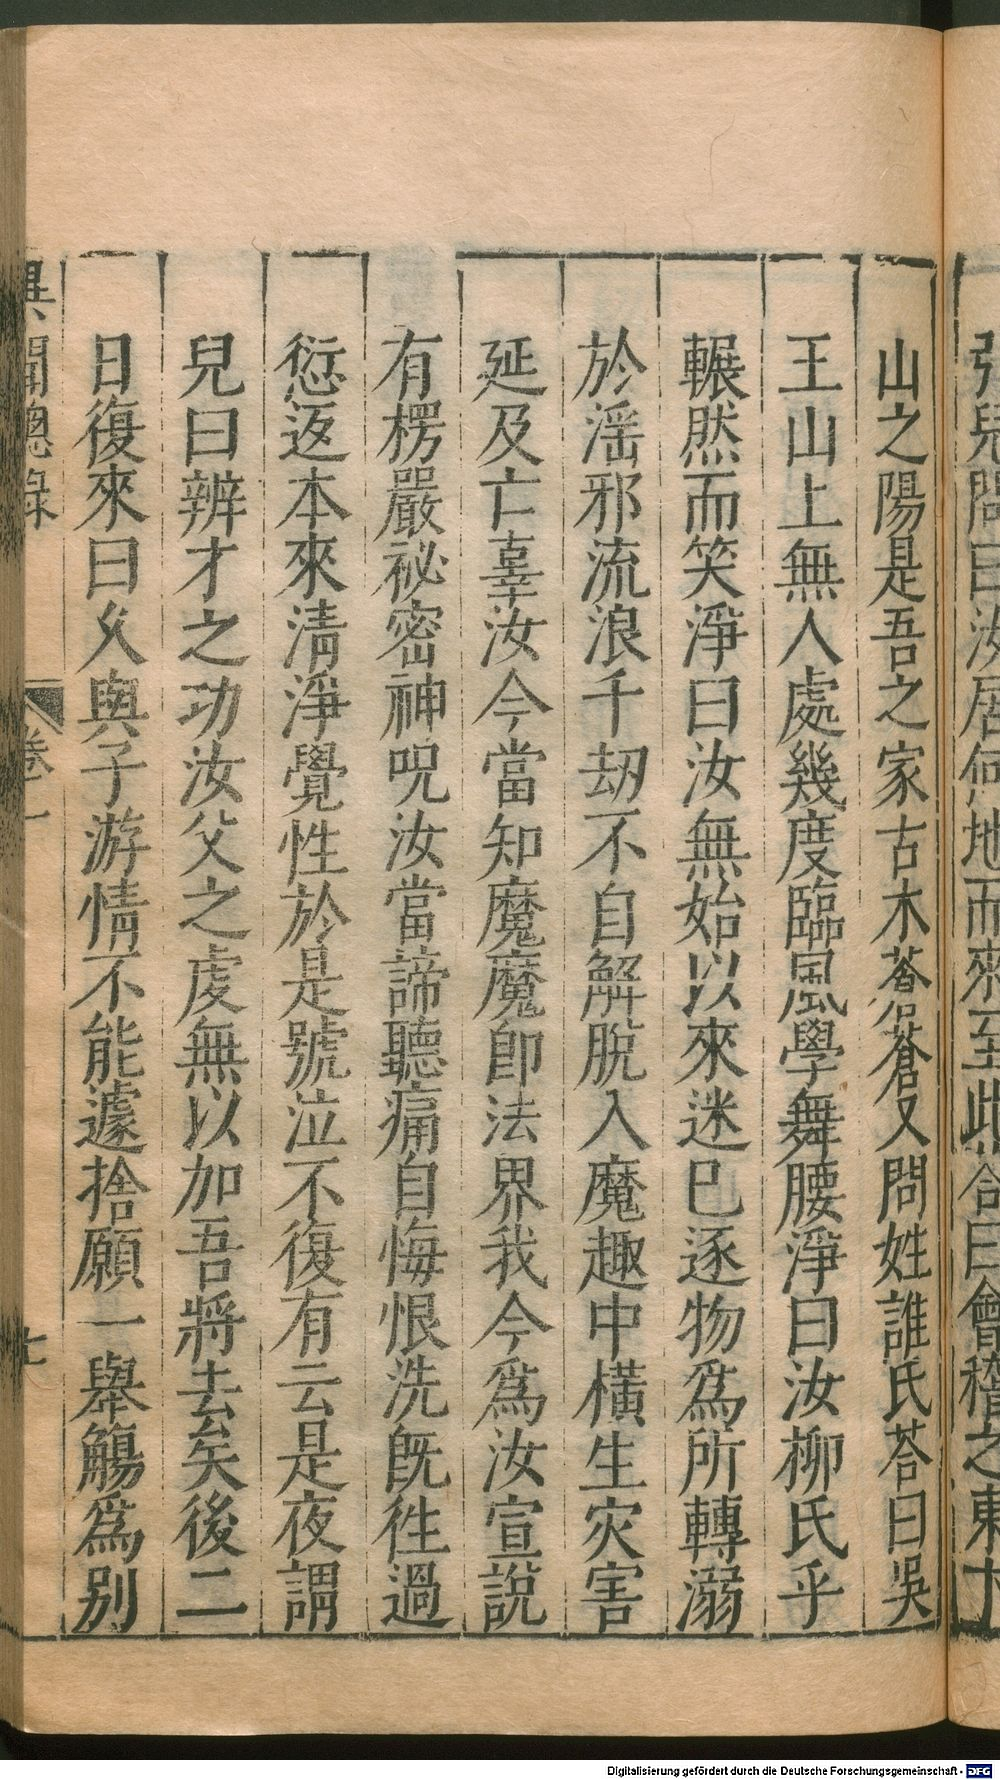 張兒問曰汝居何地而來至此答曰會稽之東卞
山之陽是吾之家古木蒼蒼又問姓誰氏荅曰吳
王山上無人處幾度臨風學舞腰淨曰汝柳氏乎
輾然而笑淨曰汝無始以來迷已逐物為所轉溺
於滛邪流浪千刼不自解脫入魔趣中橫生灾害
延及亡辜汝今當知魔魔即法界我今為汝宣說
有楞嚴祕密神呪汝當諦聽痛自悔恨洗旣徃過
愆返本來清淨覺性於是號泣不復有云是夜謂
兒曰辨才之功汝父之虔無以加吾將去矣後二
日復來曰乆與子游情不能遽捨願一舉觴為別
異聞總錄
卷一
七
Digitalisierung gefördert durch die Deutsche Forschungsgemeinschaft - DFG